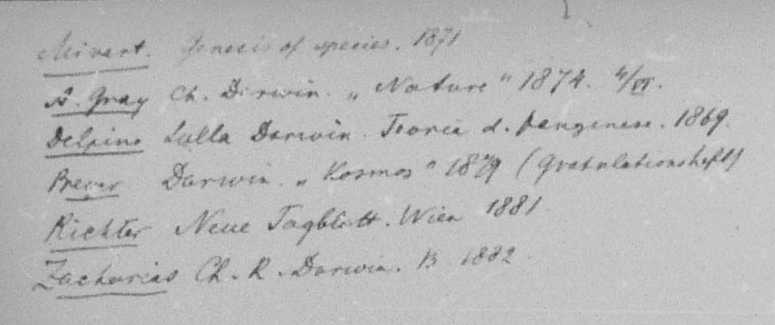 Mivart. Genesis of species. 1871
A. Gray Ch. Darwin. „Nature" 1874. 4/VI.
Delpino Sulla Darwin. Teoria d. Pangenesi. 1869.
Preyer Darwin. „Kosmos" 1879 (Gratulationsheft)
Richter Neue Tagblatt. Wien 1881.
Zacharias Ch. R. Darwin. B 1882.